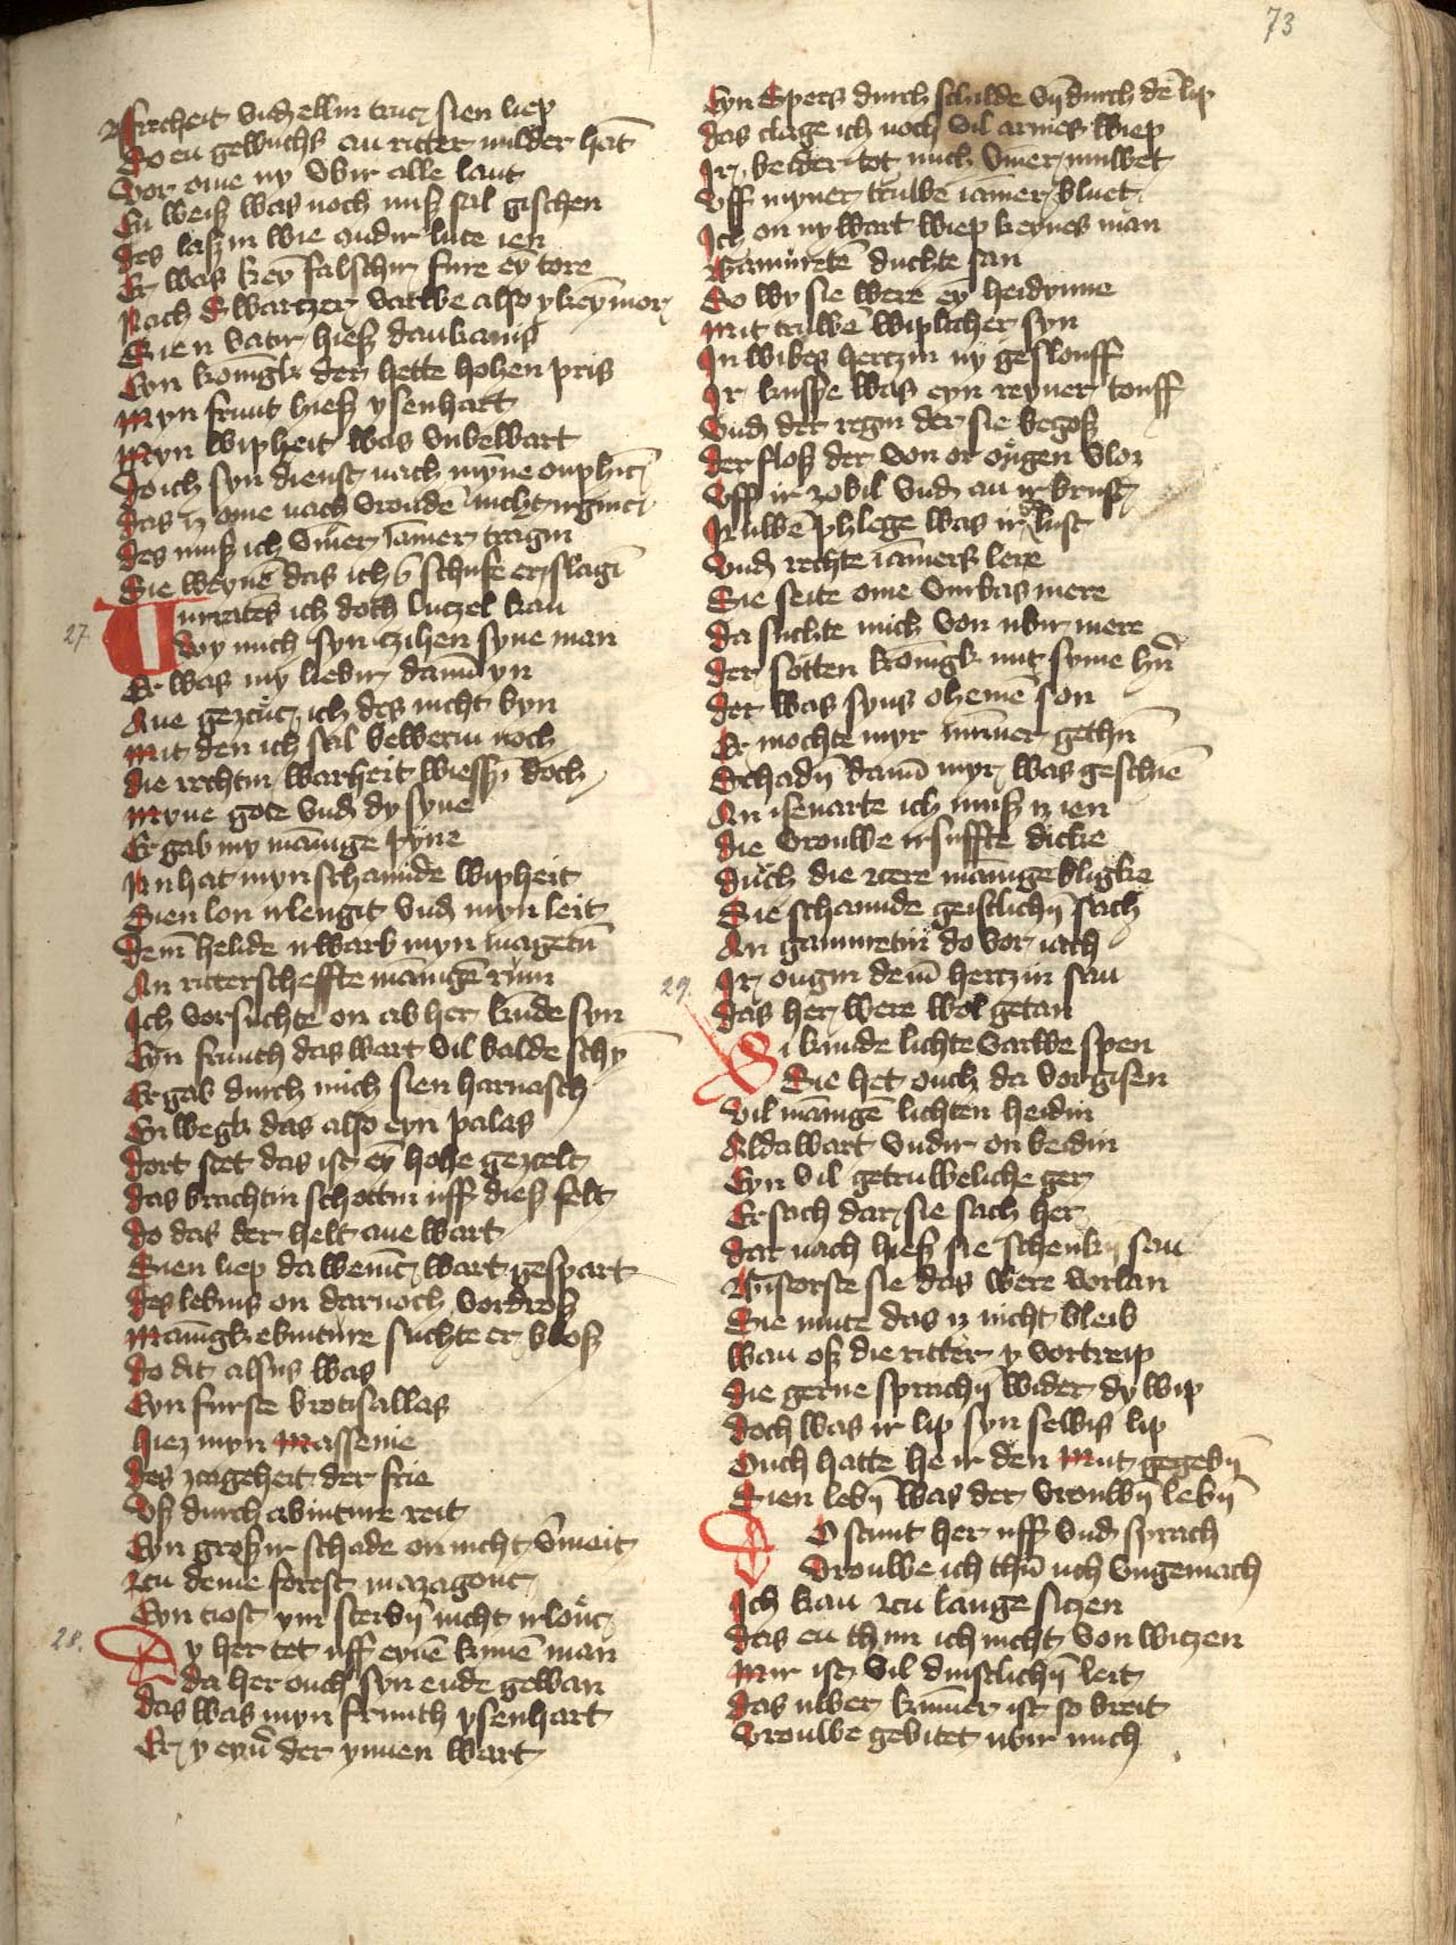 73
Frecheit vnd ellin truc sien liep
do en gewuchs an ritter milder hāt
Vor ome ny vbir alle lant
En weiß was noch miß sal gischen
des laß in wie andir lute ien
Er was keȳ falschir fure eȳ tore
Nach Swartzer varwe also y keȳ mor
Sien vatir hieß dankanis
Eyn konīgk der hette hohen pris
Myn frunt hieß ysenhart
Myn wipheit was vnbewart
do ich syn dienst nach mȳne
das iz ome nach vroude nicht irginc
des muß ich vm̄er iāmer tragin
Sie weynē das ich schufe erslagī
27
Vurratēs ich doch lutzel kan
dvy mich syn czihen syne man
Er was my liebir dann̄ yn
Ane gezcuc ich des nicht byn
Mit den ich sal bewerin noch
die rechtin warheit wiessyn doch
Myne gote vnd dy syne
Er gab my mānige pyne
Nu hat myn schamide wipheit
Sien lon irlengit vnd myn leit
dem̄ helide irwarb myn magetū
An ritterscheffte mānigē rum
Ich vorsuchte on ab her kunde syn
Eyn frunth das wart vil balde schȳ
Er gab durch mich sien harnasch
En wegk das also eyn palas
dort stet das ist eȳ hohe gezcelt
das brachtin schottin uff dieß felt
do das der helt ane wart
Sien liep da wenic wart gespart
des lebins on darnoch vordroß
Mānigk ebinture suchte er bloß
do dit alsus was
Eyn furste brotisallas
hiez myn Massenie
des zageheit der frie
Vß durch abinture reit
Eyn groß ir schade on nicht v̄meit
zcu deme forest mazagonc
Eyn tiost ym sterbȳ nicht irlonc
28.
Dy her tet uff eynē kunē man
da her ouch syn ende gewan
das was myn frunth ysenhart
Er y eyn̄ der ynnen wart
Eyn Spers durch schilde vn̄ durch dē lip
das clage ich noch vil armes wiep
Ir beider tot mich vm̄er muwet
Vff myner truwē iāmer bluet
Ich on ny wart wiep keynes man
Gamuretē duchte san
do wy sie were eȳ heidynne
Mit truwē wiplicher syn
In wibes hertzin nȳ geslouff
Ir kuße was eyn reyner touff
Vnd der regin der sie begoß
der floß der von or ougen vloz
Vff ir zobil vnd an ir brust
Ruwē phlege was ir lust
Vnd rechte iāmers lere
Sie seite ome vmbas mere
da suchte mich von ubir mere
der sotten konīgk mit syme her̄
der was syns ohemē son
Er mochte myr nim̄er gethū
Schadȳ dann̄ myr was geschiē
An isenarte ich muß iz ien
die vrouwe irsuffte dicke
durch die zcere mānige bligke
Sie schamide geistlichȳ sach
An gammretin do vor iach
Ir ougin dem̄ hertzin san
29.
das her were wol getan
Si kunde lichte varwe spen
Sie het ouch da vor gisen
Vil mānigē lichten heidin
Alda wart vndir on beidin
Eyn vil getruweliche ger
Er sach dar sie sach her
dar nach hieß sie schenkȳ san
Gistorste sie das were vorlan
Sie mute das iz nicht bleib
wan oß die ritter y vortreip
die gerne sprachȳ wider dy wip
doch was ir lip syn selbis lip
Ouch hatte he ir den Mut gegebȳ
Sien lebȳ was der vrouwȳ lebȳ
Do stunt her uff vnd sprach
Vrouwe ich thū uch vngemach
Ich kan zcu lange sitzen
das en thun ich nicht von witzen
Mir ist vil dinstlichȳ leit
das uwer kum̄er ist so breit
Vrouwe gebitet ubir mich